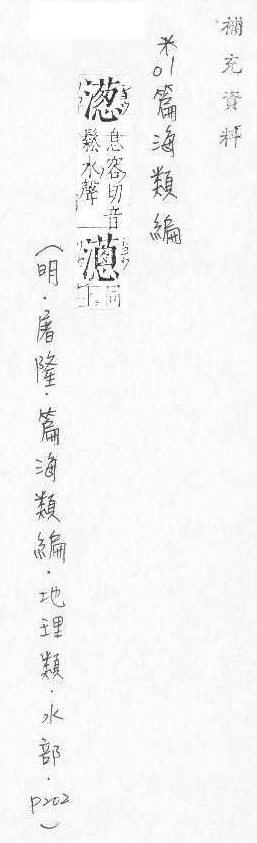 補充資料
*01篇海類編
㴓 息容切音鬆水聲
同上
(明．屠隆．篇海類編．地理類．水部．p202)